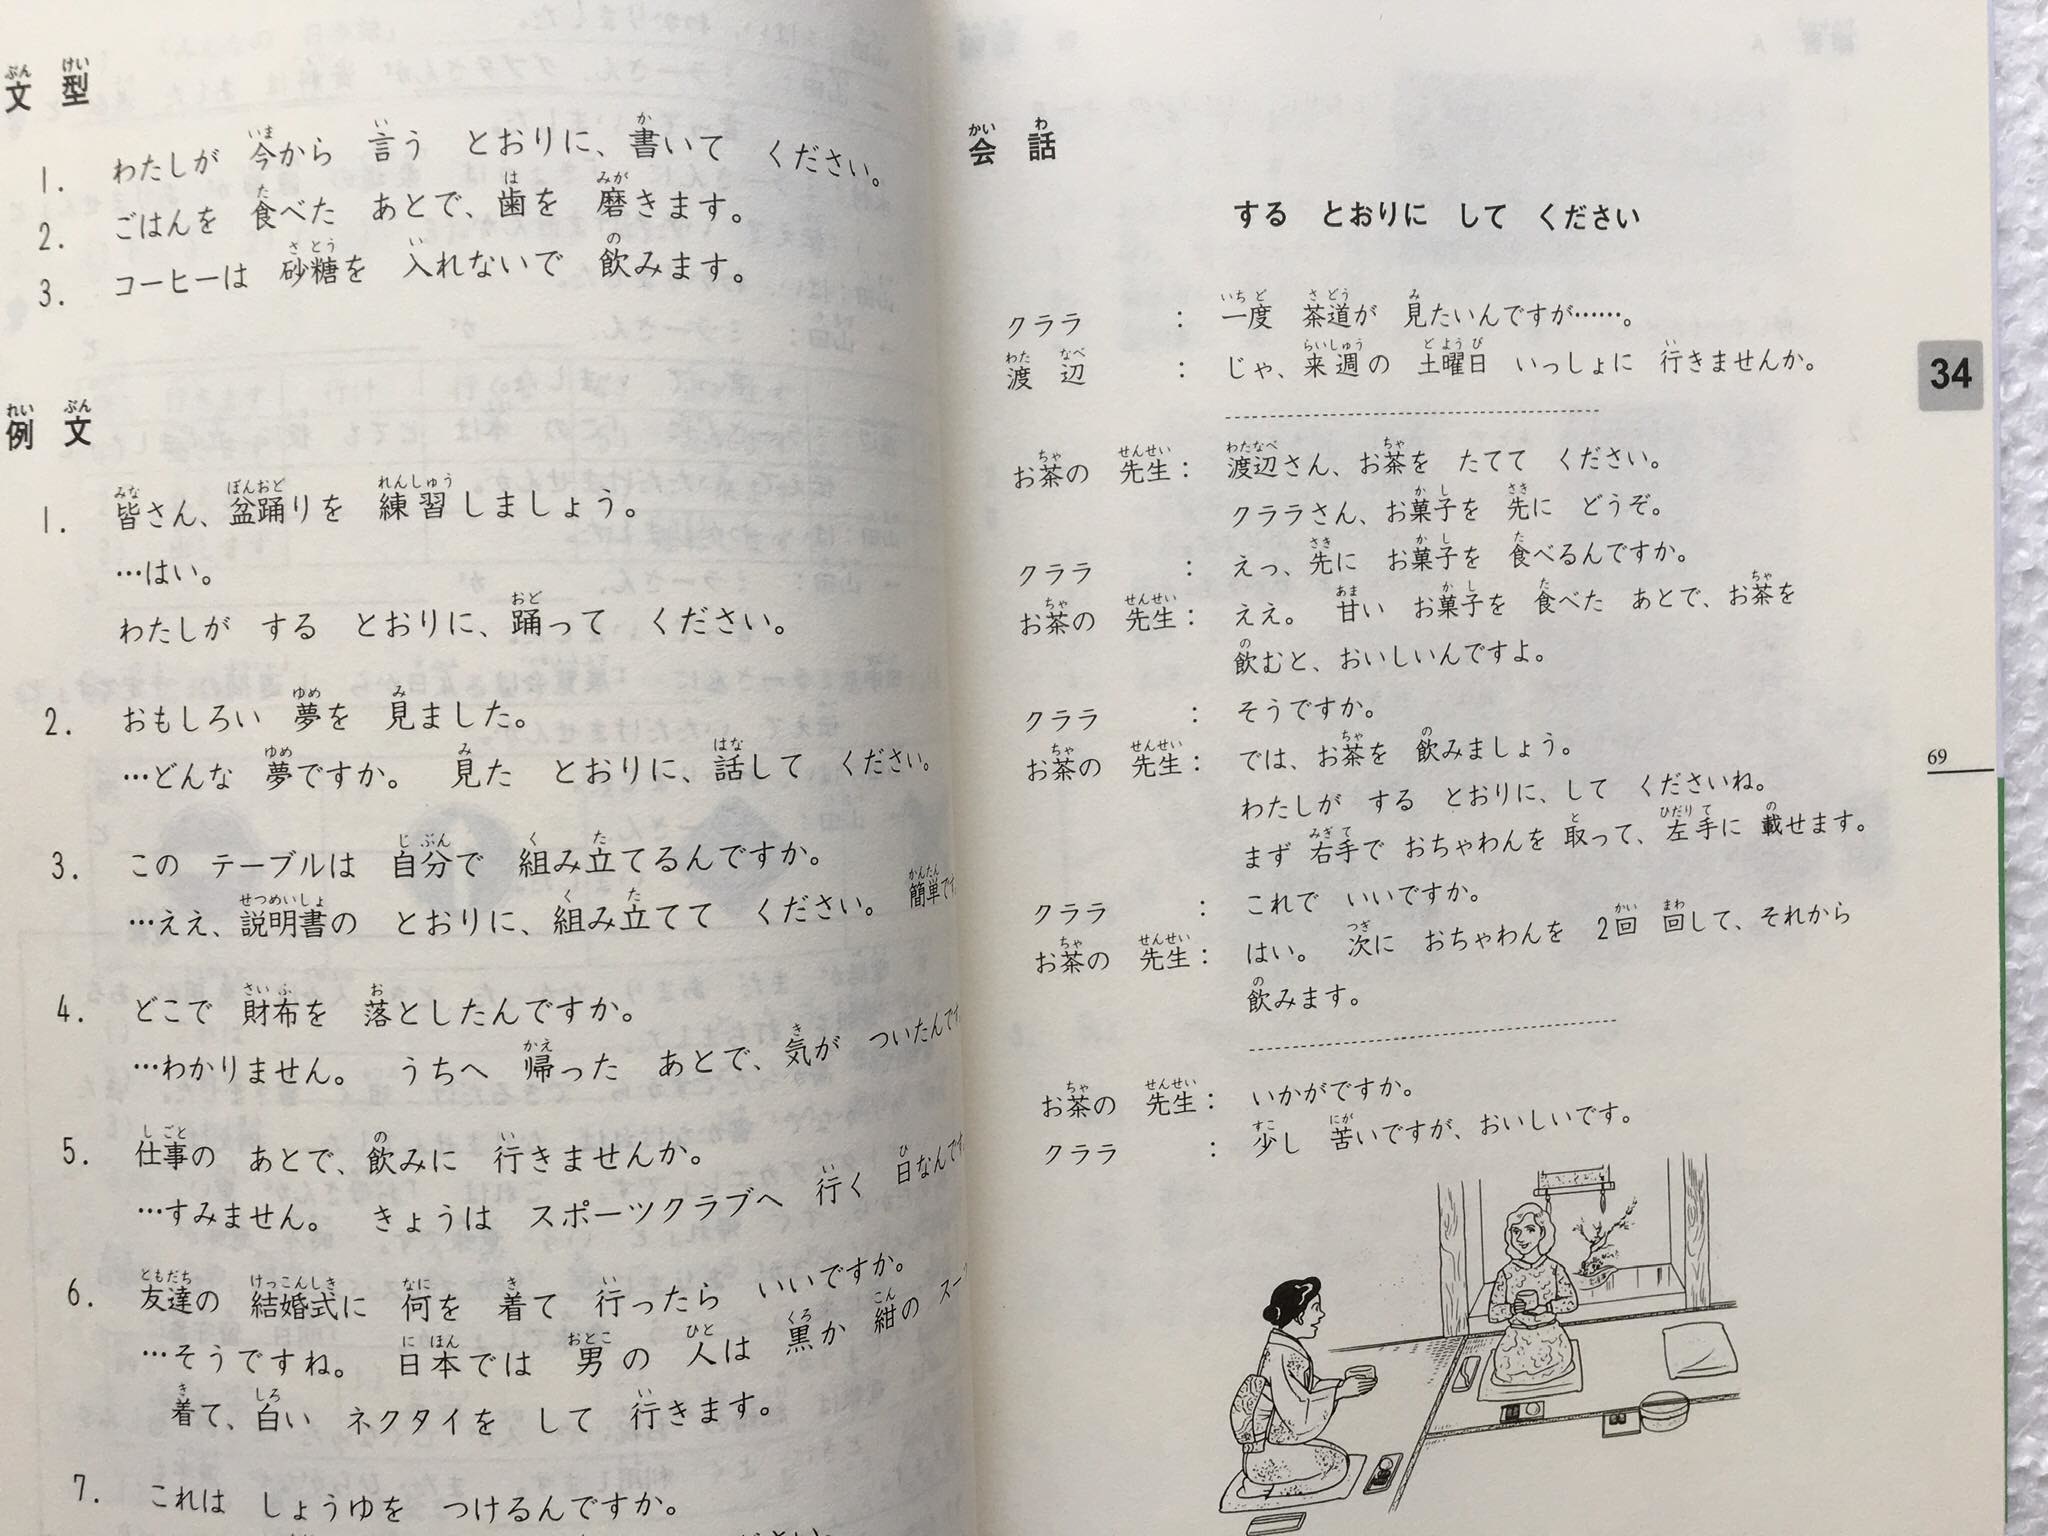 文型
1. わたしが 今から 言う とおりに、書いて ください。
2. ごはんを 食べた あとで、歯を 磨きます。
3. コーヒーは 砂糖を 入れないで 飲みます。
例文
1. 皆さん、盆踊りを 練習しましょう。
…はい。
わたしが する とおりに、踊って ください。
2. おもしろい 夢を 見ました。
…どんな 夢ですか。 見た とおりに、話して ください。
3. この テーブルは 自分で 組み立てるんですか。
…ええ、説明書の とおりに、組み立てて ください。 簡単で
4. どこで 財布を 落としたんですか。
…わかりません。 うちへ 帰った あとで、気が ついたんで
5. 仕事の あとで、飲みに 行きませんか。
…すみません。 きょうは スポーツクラブへ 行く 日なんで
6. 友達の 結婚式に 何を 着て 行ったら いいですか。
…そうですね。 日本では 男の 人は 黒か 紺の スー
着て、白い ネクタイを して 行きます。
7. これは しょうゆを つけるんですか。
会話
する とおりに して ください
クララ : 一度 茶道が 見たいんですが……。
渡辺 : じゃ、来週の 土曜日 いっしょに 行きませんか。
お茶の 先生: 渡辺さん、お茶を たてて ください。
クララさん、お菓子を 先に どうぞ。
クララ : えっ、先に お菓子を 食べるんですか。
お茶の 先生: ええ。 甘い お菓子を 食べた あとで、お茶を
飲むと、おいしいんですよ。
クララ : そうですか。
お茶の 先生: では、お茶を 飲みましょう。
わたしが する とおりに、して くださいね。
まず 右手で おちゃわんを 取って、左手に 載せます。
クララ : これで いいですか。
お茶の 先生: はい。 次に おちゃわんを 2回 回して、それから
飲みます。
お茶の 先生: いかがですか。
クララ : 少し 苦いですが、おいしいです。
34
69